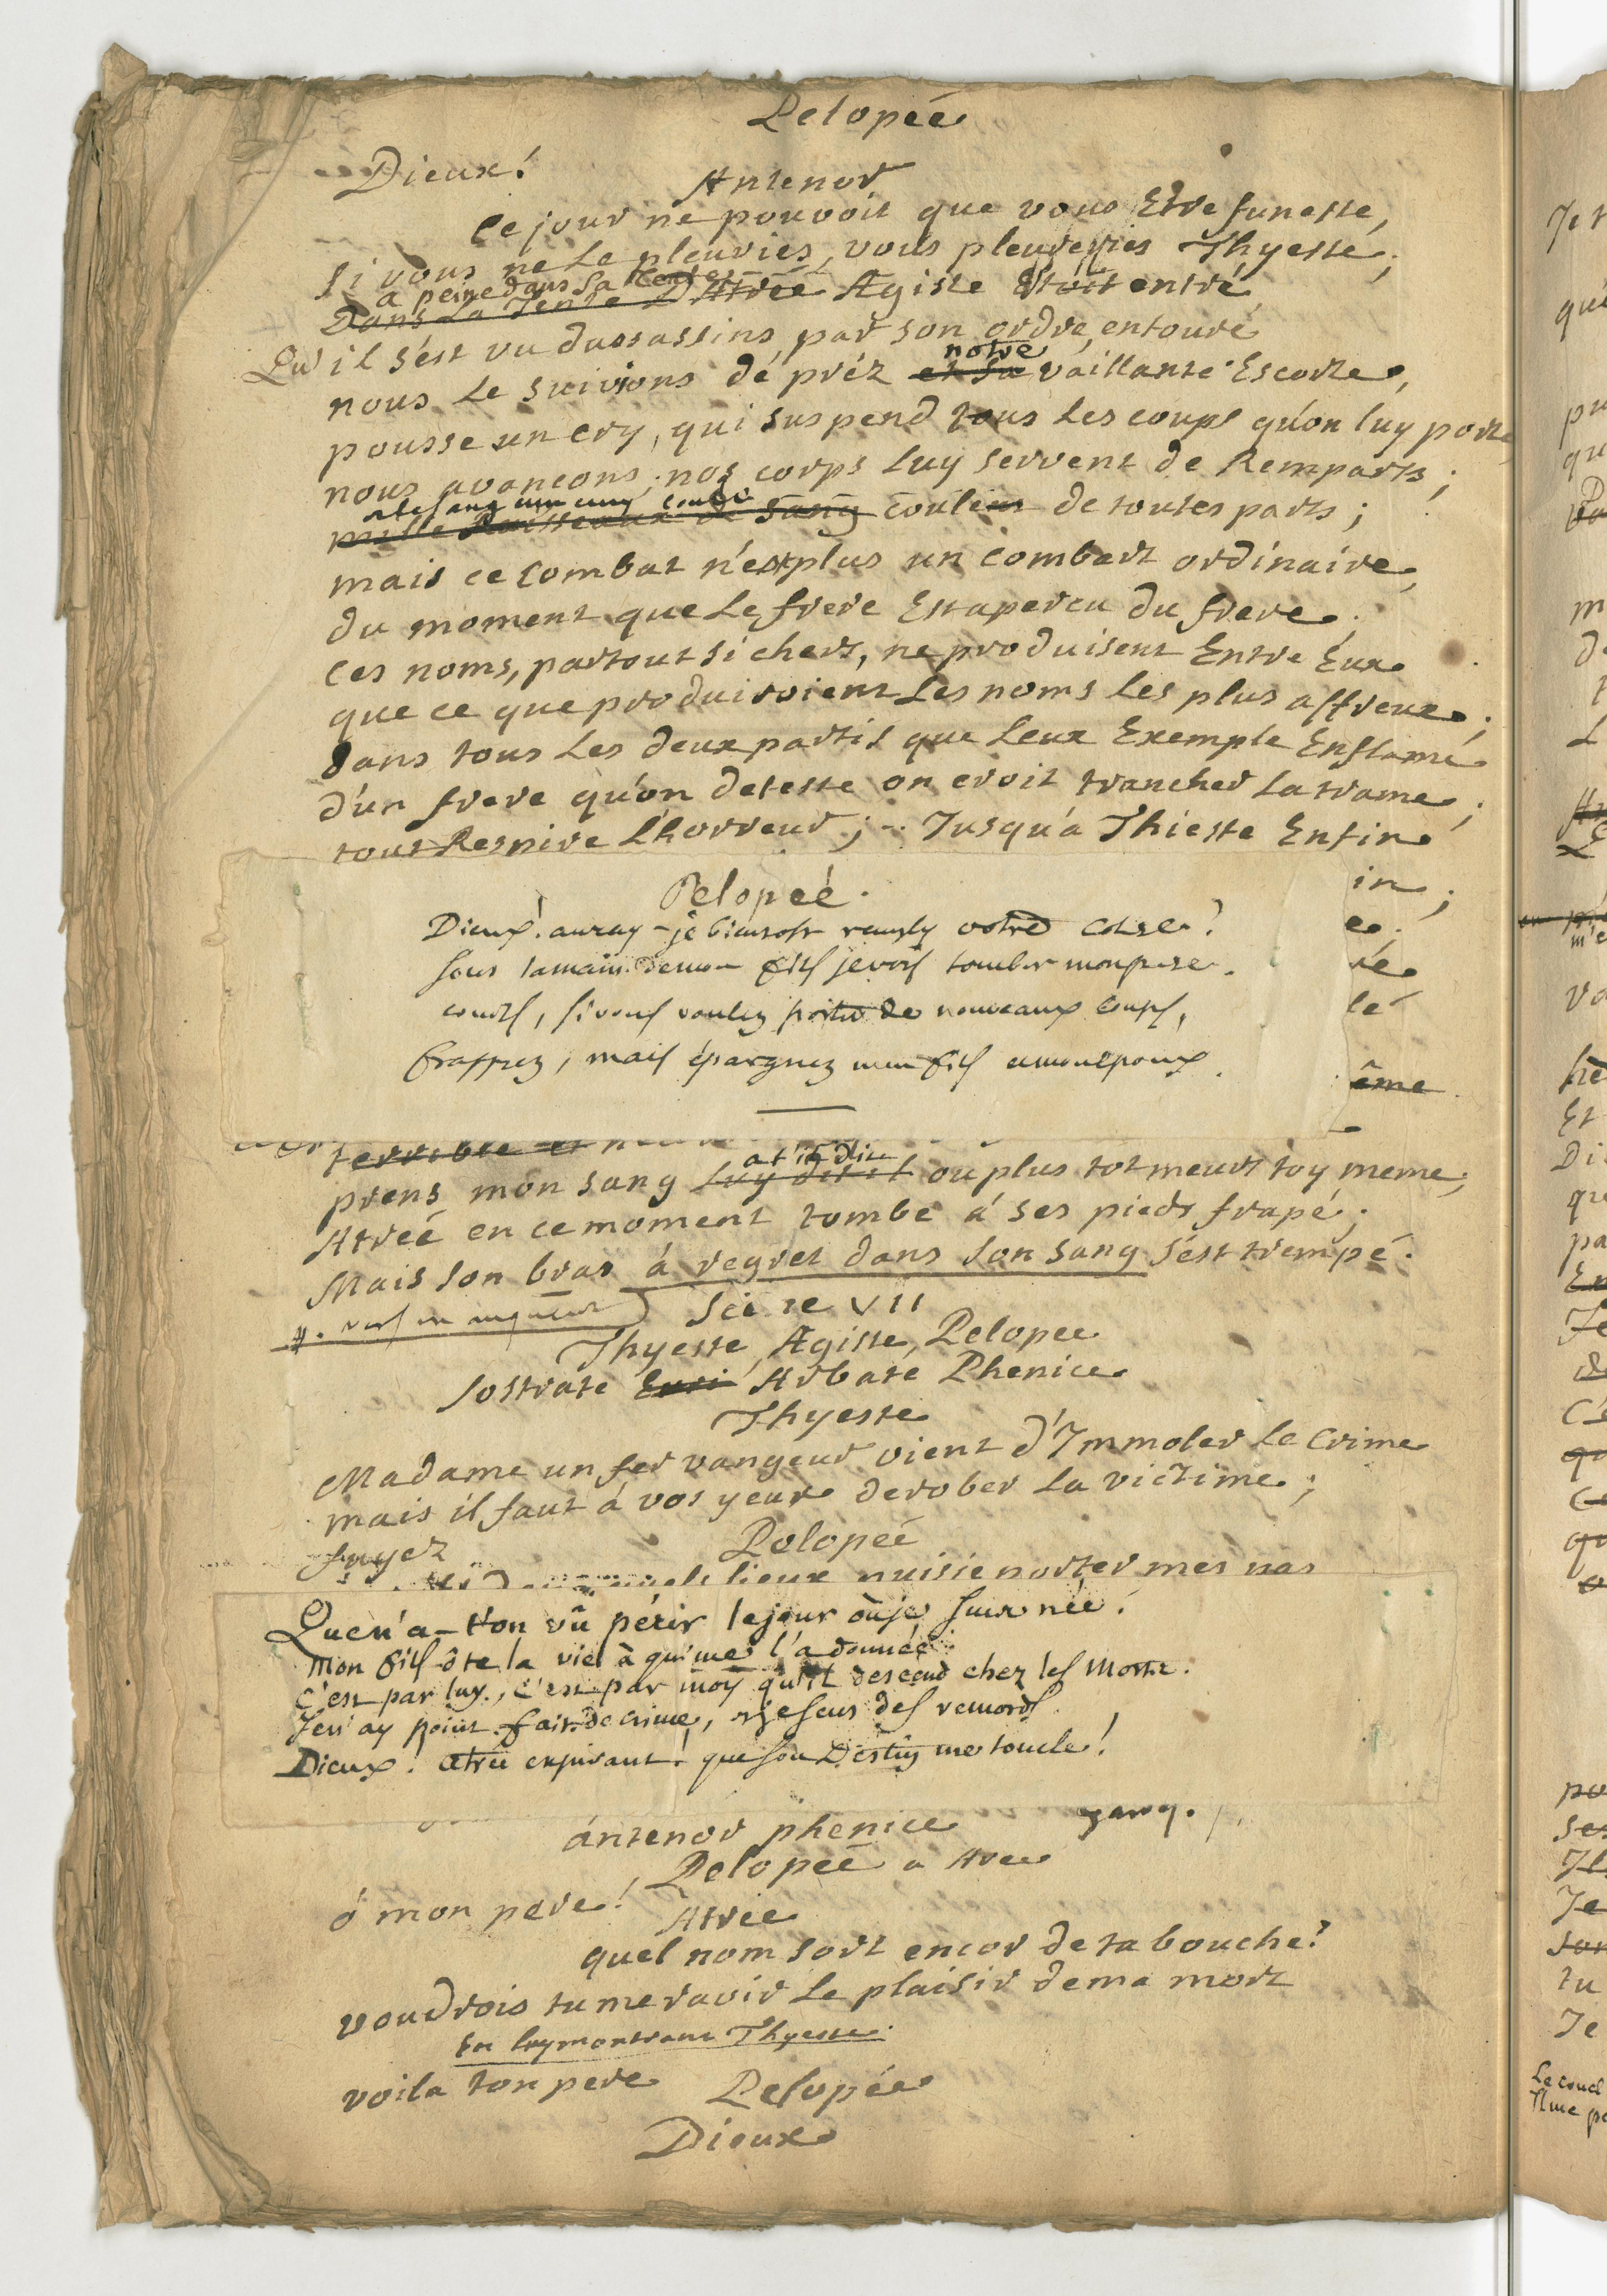 Pelopeé
Dieux!
Antenor
Ce jour ne pouvoit que vous Etre funeste,
si vous ne Le pleuriez, vous pleureries Thyeste;
a peine dans Sa tente
Dans La Tente D'Atreé Ægiste Etoit entré
Qu'il s'est vu dassassins par son ordre entouré
notre
nous Le suivions de préz et sa vaillante Escorte,
pousse un cry, qui suspend tous Les coups qu'on luy porte
nous avancons; nos corps Luy servent de Remparts;
mille Ruisseaux de sang coulent de toutes parts;
mais ce Combat n'est plus un combart ordinaire,
du moment que Le frere Est apercu du frere;
Ces noms, partout si chers, ne produisent Entre Eux
que ce que produiroient Les noms Les plus affreux;
dans tous Les deux partis que Leur Exemple Enflamé
d'un frere qu'on deteste on croit trancher La trame;
tout Respire L'horreur; Jusqu'a Thieste Enfin
Pelopeé.
in;
Dieux! auray-je bientost remply votre colere?
e;
sous la main de mon fils je vois tomber mon pere.
ré
courez, si vous voulez porter de nouveaux coups,
lé
frappez, mais épargnez mon fils et mon époux.
ême
terrible et
at'il dit
prens mon sang Luy dit il ou plus tot meurs toy meme;
Atreé en ce moment tombe á ses pieds frapé;
Mais son bras á regret dans son sang s'est trempé.
Sce ne VII
Thyeste, Ægiste, Pelopeé
Sostrate Euri Arbate Phenice
Thyeste
Madame un fer vangeur vient d'Immoler Le Crime
mais il faut á vos yeux derober La victime;
fuyez
Pelopeé
lieux puisie porter mes pas
Que n'a-t'on vû périr le jour où je suis née!
Mon fils ôte la vie à qui me l'a donnée.
C'est par luy, c'est par moy qu'il descend chez les Morts.
Je n'ay point fait de crime, et je sens des remords.
Dieux! Atrée expirant! que son Destin me touche!
antenor phenice
Pelopeé a Atreé
ó mon pere!
Atrée
quel nom sort encor de ta bouche?
voudrois tu me ravir Le plaisir de ma mort
En luy montrant Thyeste
voila ton pere
Pelopée
Dieux